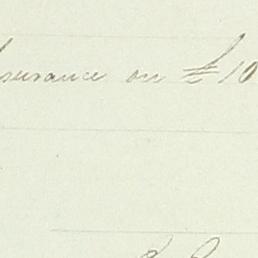 surance on £10